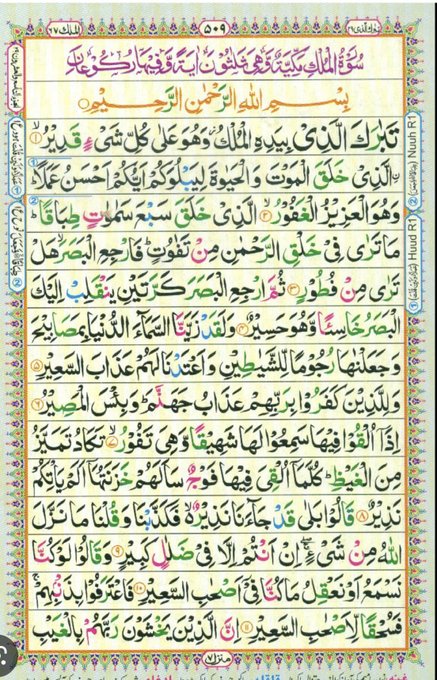 الملك ٦٧
٥٠٩
تبرك الذی ٢٩
سُوْرَةُ الْمُلْكِ مَكِّيَّةٌ وَّهِيَ ثَلٰثُوْنَ اٰيَةً وَّفِيْهَا رُكُوْعَانِ
بِسْمِ اللهِ الرَّحْمٰنِ الرَّحِيْمِ
تَبٰرَكَ الَّذِىْ بِيَدِهِ الْمُلْكُ وَهُوَ عَلٰى كُلِّ شَىْءٍ قَدِيْرُ ۙ﴿١﴾
ۨالَّذِىْ خَلَقَ الْمَوْتَ وَ الْحَيٰوةَ لِيَبْلُوَكُمْ اَيُّكُمْ اَحْسَنُ عَمَلًا ؕ
وَهُوَ الْعَزِيْزُ الْغَفُوْرُ ۙ﴿٢﴾ الَّذِىْ خَلَقَ سَبْعَ سَمٰوٰتٍ طِبَاقًا ؕ
مَا تَرٰى فِىْ خَلْقِ الرَّحْمٰنِ مِنْ تَفٰوُتٍ ؕ فَارْجِعِ الْبَصَرَ ۙ هَلْ
تَرٰى مِنْ فُطُوْرٍ ﴿٣﴾ ثُمَّ ارْجِعِ الْبَصَرَ كَرَّتَيْنِ يَنْقَلِبْ اِلَيْكَ
الْبَصَرُ خَاسِئًا وَّهُوَ حَسِيْرٌ ﴿٤﴾ وَلَقَدْ زَيَّنَّا السَّمَآءَ الدُّنْيَا بِمَصَابِيْحَ
وَجَعَلْنٰهَا رُجُوْمًا لِّلشَّيٰطِيْنِ وَاَعْتَدْنَا لَهُمْ عَذَابَ السَّعِيْرِ ﴿٥﴾
وَلِلَّذِيْنَ كَفَرُوْا بِرَبِّهِمْ عَذَابُ جَهَنَّمَ ؕ وَبِئْسَ الْمَصِيْرُ ﴿٦﴾
اِذَاۤ اُلْقُوْا فِيْهَا سَمِعُوْا لَهَا شَهِيْقًا وَّهِىَ تَفُوْرُ ۙ﴿٧﴾ تَكَادُ تَمَيَّزُ
مِنَ الْغَيْظِ ؕ كُلَّمَاۤ اُلْقِىَ فِيْهَا فَوْجٌ سَاَلَهُمْ خَزَنَتُهَاۤ اَلَمْ يَاْتِكُمْ
نَذِيْرٌ ﴿٨﴾ قَالُوْا بَلٰى قَدْ جَآءَنَا نَذِيْرٌ ۙ فَكَذَّبْنَا وَ قُلْنَا مَا نَزَّلَ
اللهُ مِنْ شَىْءٍ ۖۚ اِنْ اَنْتُمْ اِلَّا فِىْ ضَلٰلٍ كَبِيْرٍ ﴿٩﴾ وَقَالُوْا لَوْ كُنَّا
نَسْمَعُ اَوْ نَعْقِلُ مَا كُنَّا فِىْۤ اَصْحٰبِ السَّعِيْرِ ﴿١٠﴾ فَاعْتَرَفُوْا بِذَنْۢبِهِمْ ۚ
فَسُحْقًا لِّاَصْحٰبِ السَّعِيْرِ ﴿١١﴾ اِنَّ الَّذِيْنَ يَخْشَوْنَ رَبَّهُمْ بِالْغَيْبِ
منزل ٧
Nuuh R1
Huud R1